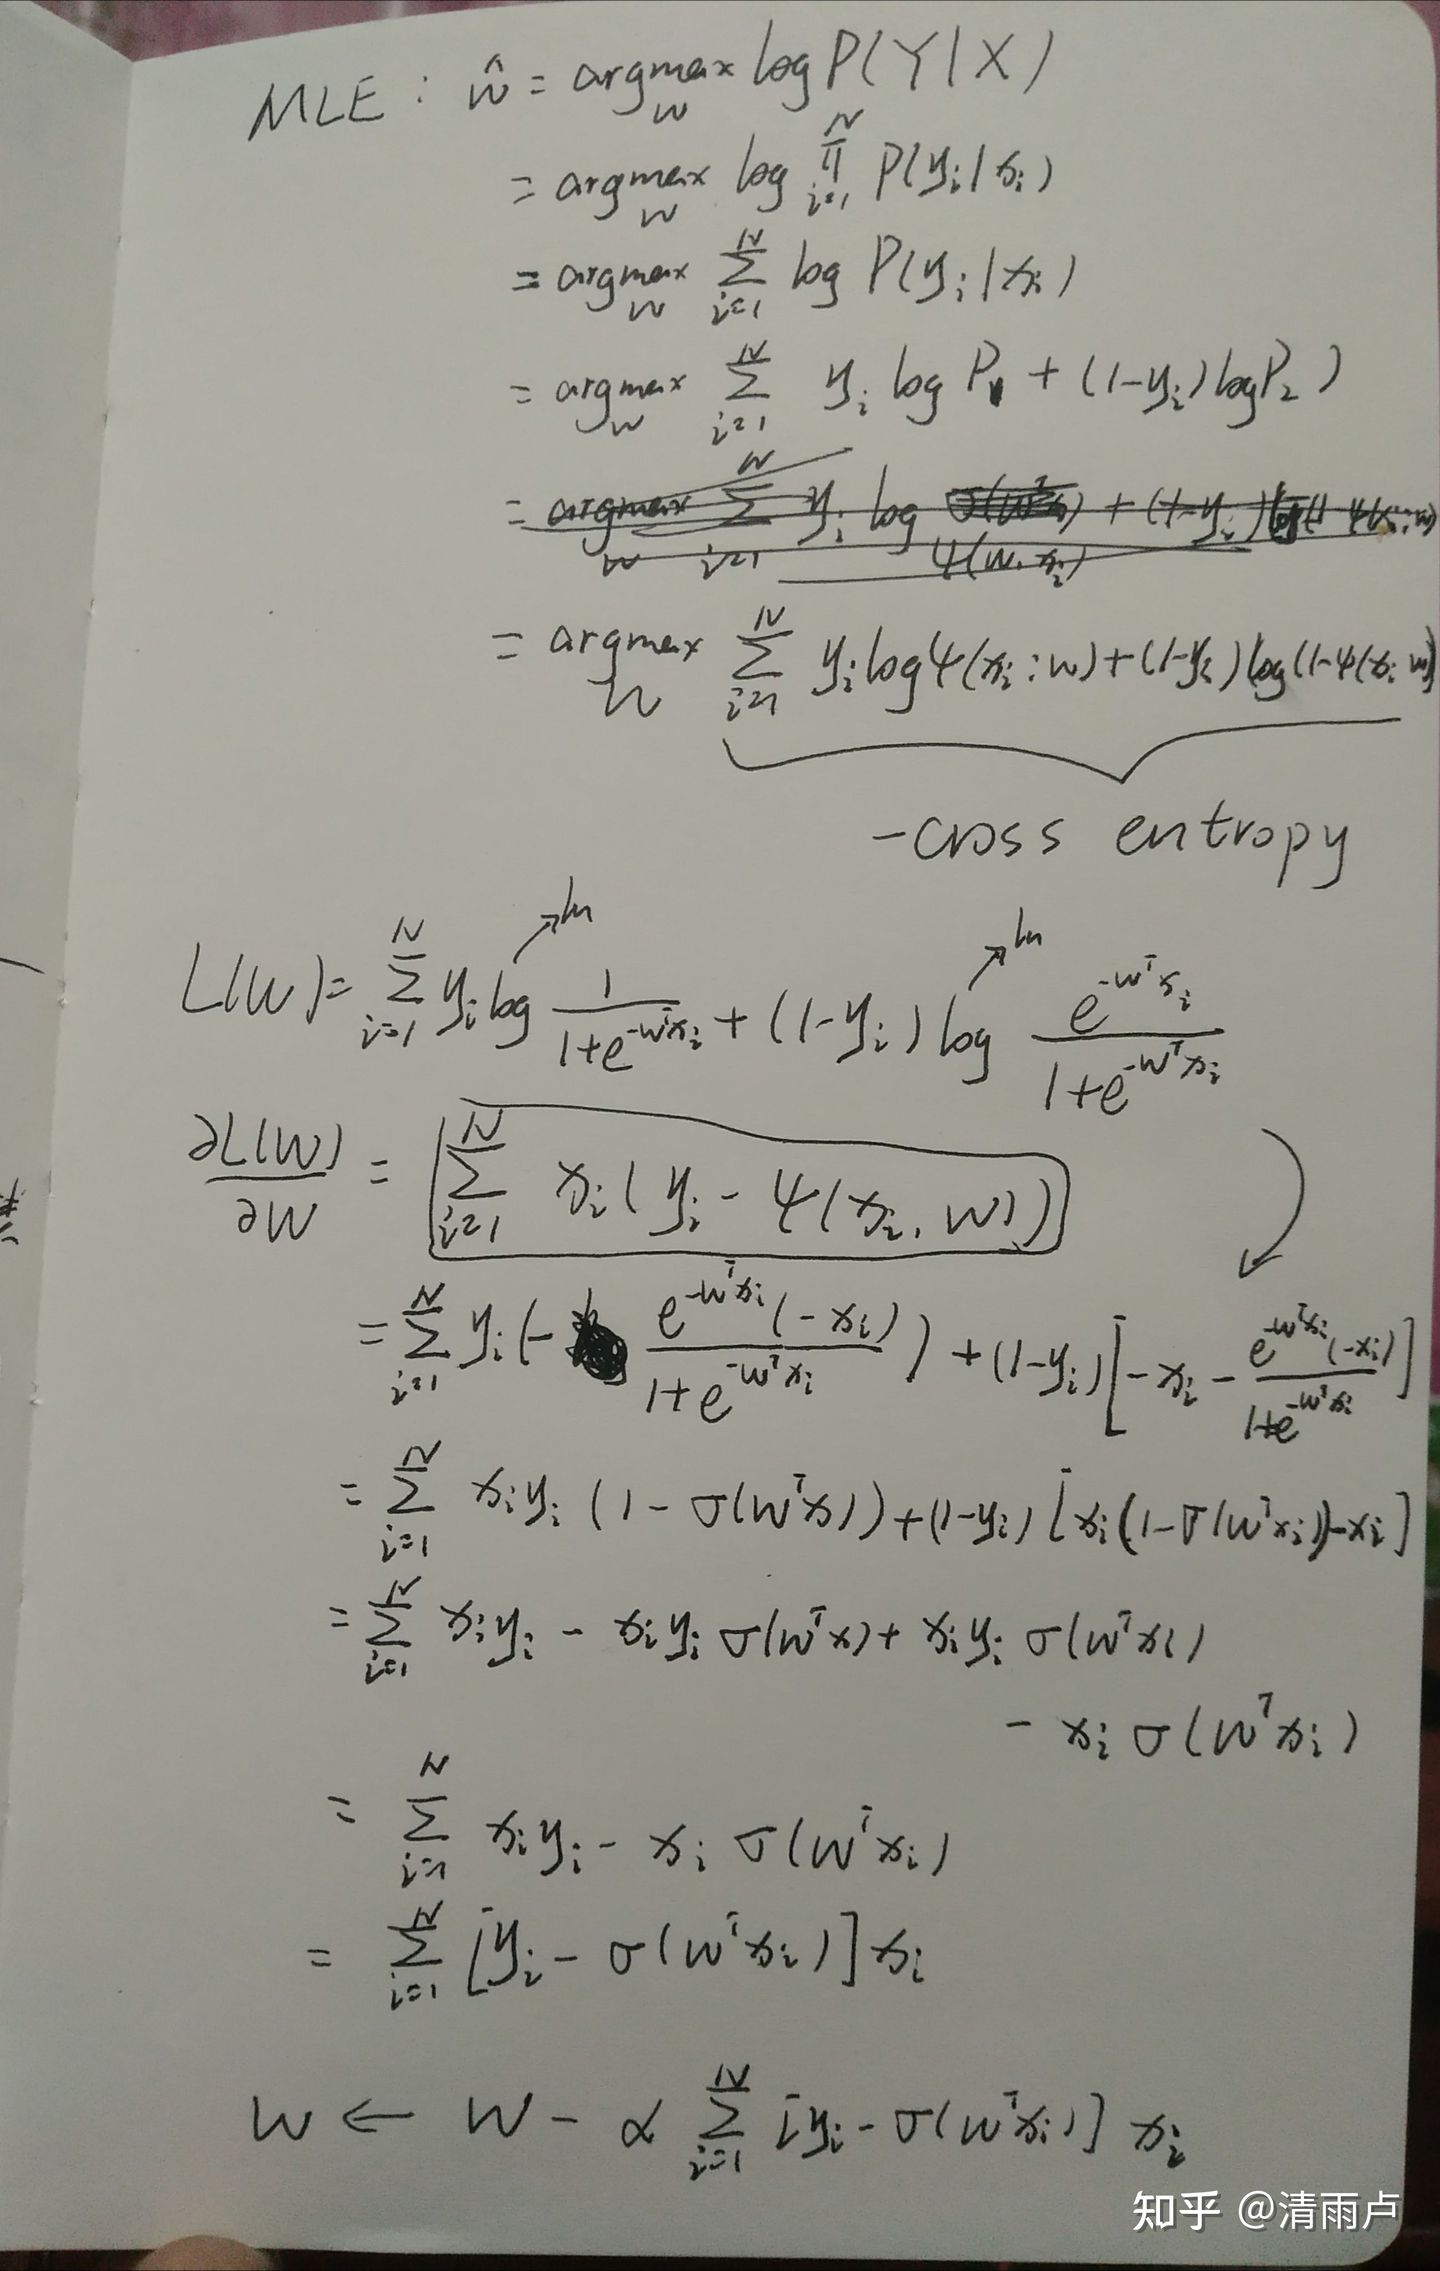 MLE : ŵ = argmax_w log P(Y|X)
= argmax_w log ∏_{i=1}^N P(y_i|x_i)
= argmax_w ∑_{i=1}^N log P(y_i|x_i)
= argmax_w ∑_{i=1}^N y_i log P_1 + (1-y_i) log P_2 )
= argmax_w ∑_{i=1}^N y_i log σ(w^T x_i) + (1-y_i) log(1 ψ(x_i:w)
ψ(w, x_i)
= argmax_w ∑_{i=1}^N y_i log ψ(x_i:w) + (1-y_i) log(1-ψ(x_i:w)
-cross entropy
ln ln
L(w) = ∑_{i=1}^N y_i log \frac{1}{1+e^{-w^T x_i}} + (1-y_i) log \frac{e^{-w^T x_i}}{1+e^{-w^T x_i}}
\frac{∂L(w)}{∂w} = ∑_{i=1}^N x_i (y_i - ψ(x_i, w))
= ∑_{i=1}^N y_i (- \frac{e^{-w^T x_i}(-x_i)}{1+e^{-w^T x_i}}) + (1-y_i) [-x_i - \frac{e^{-w^T x_i}(-x_i)}{1+e^{-w^T x_i}}]
= ∑_{i=1}^N x_i y_i (1 - σ(w^T x_i)) + (1-y_i) [x_i(1-σ(w^T x_i))-x_i]
= ∑_{i=1}^N x_i y_i - x_i y_i σ(w^T x) + x_i y_i σ(w^T x_i)
- x_i σ(w^T x_i)
= ∑_{i=1}^N x_i y_i - x_i σ(w^T x_i)
= ∑_{i=1}^N [y_i - σ(w^T x_i)] x_i
w ← w - α ∑_{i=1}^N [y_i - σ(w^T x_i)] x_i
知乎 @清雨卢